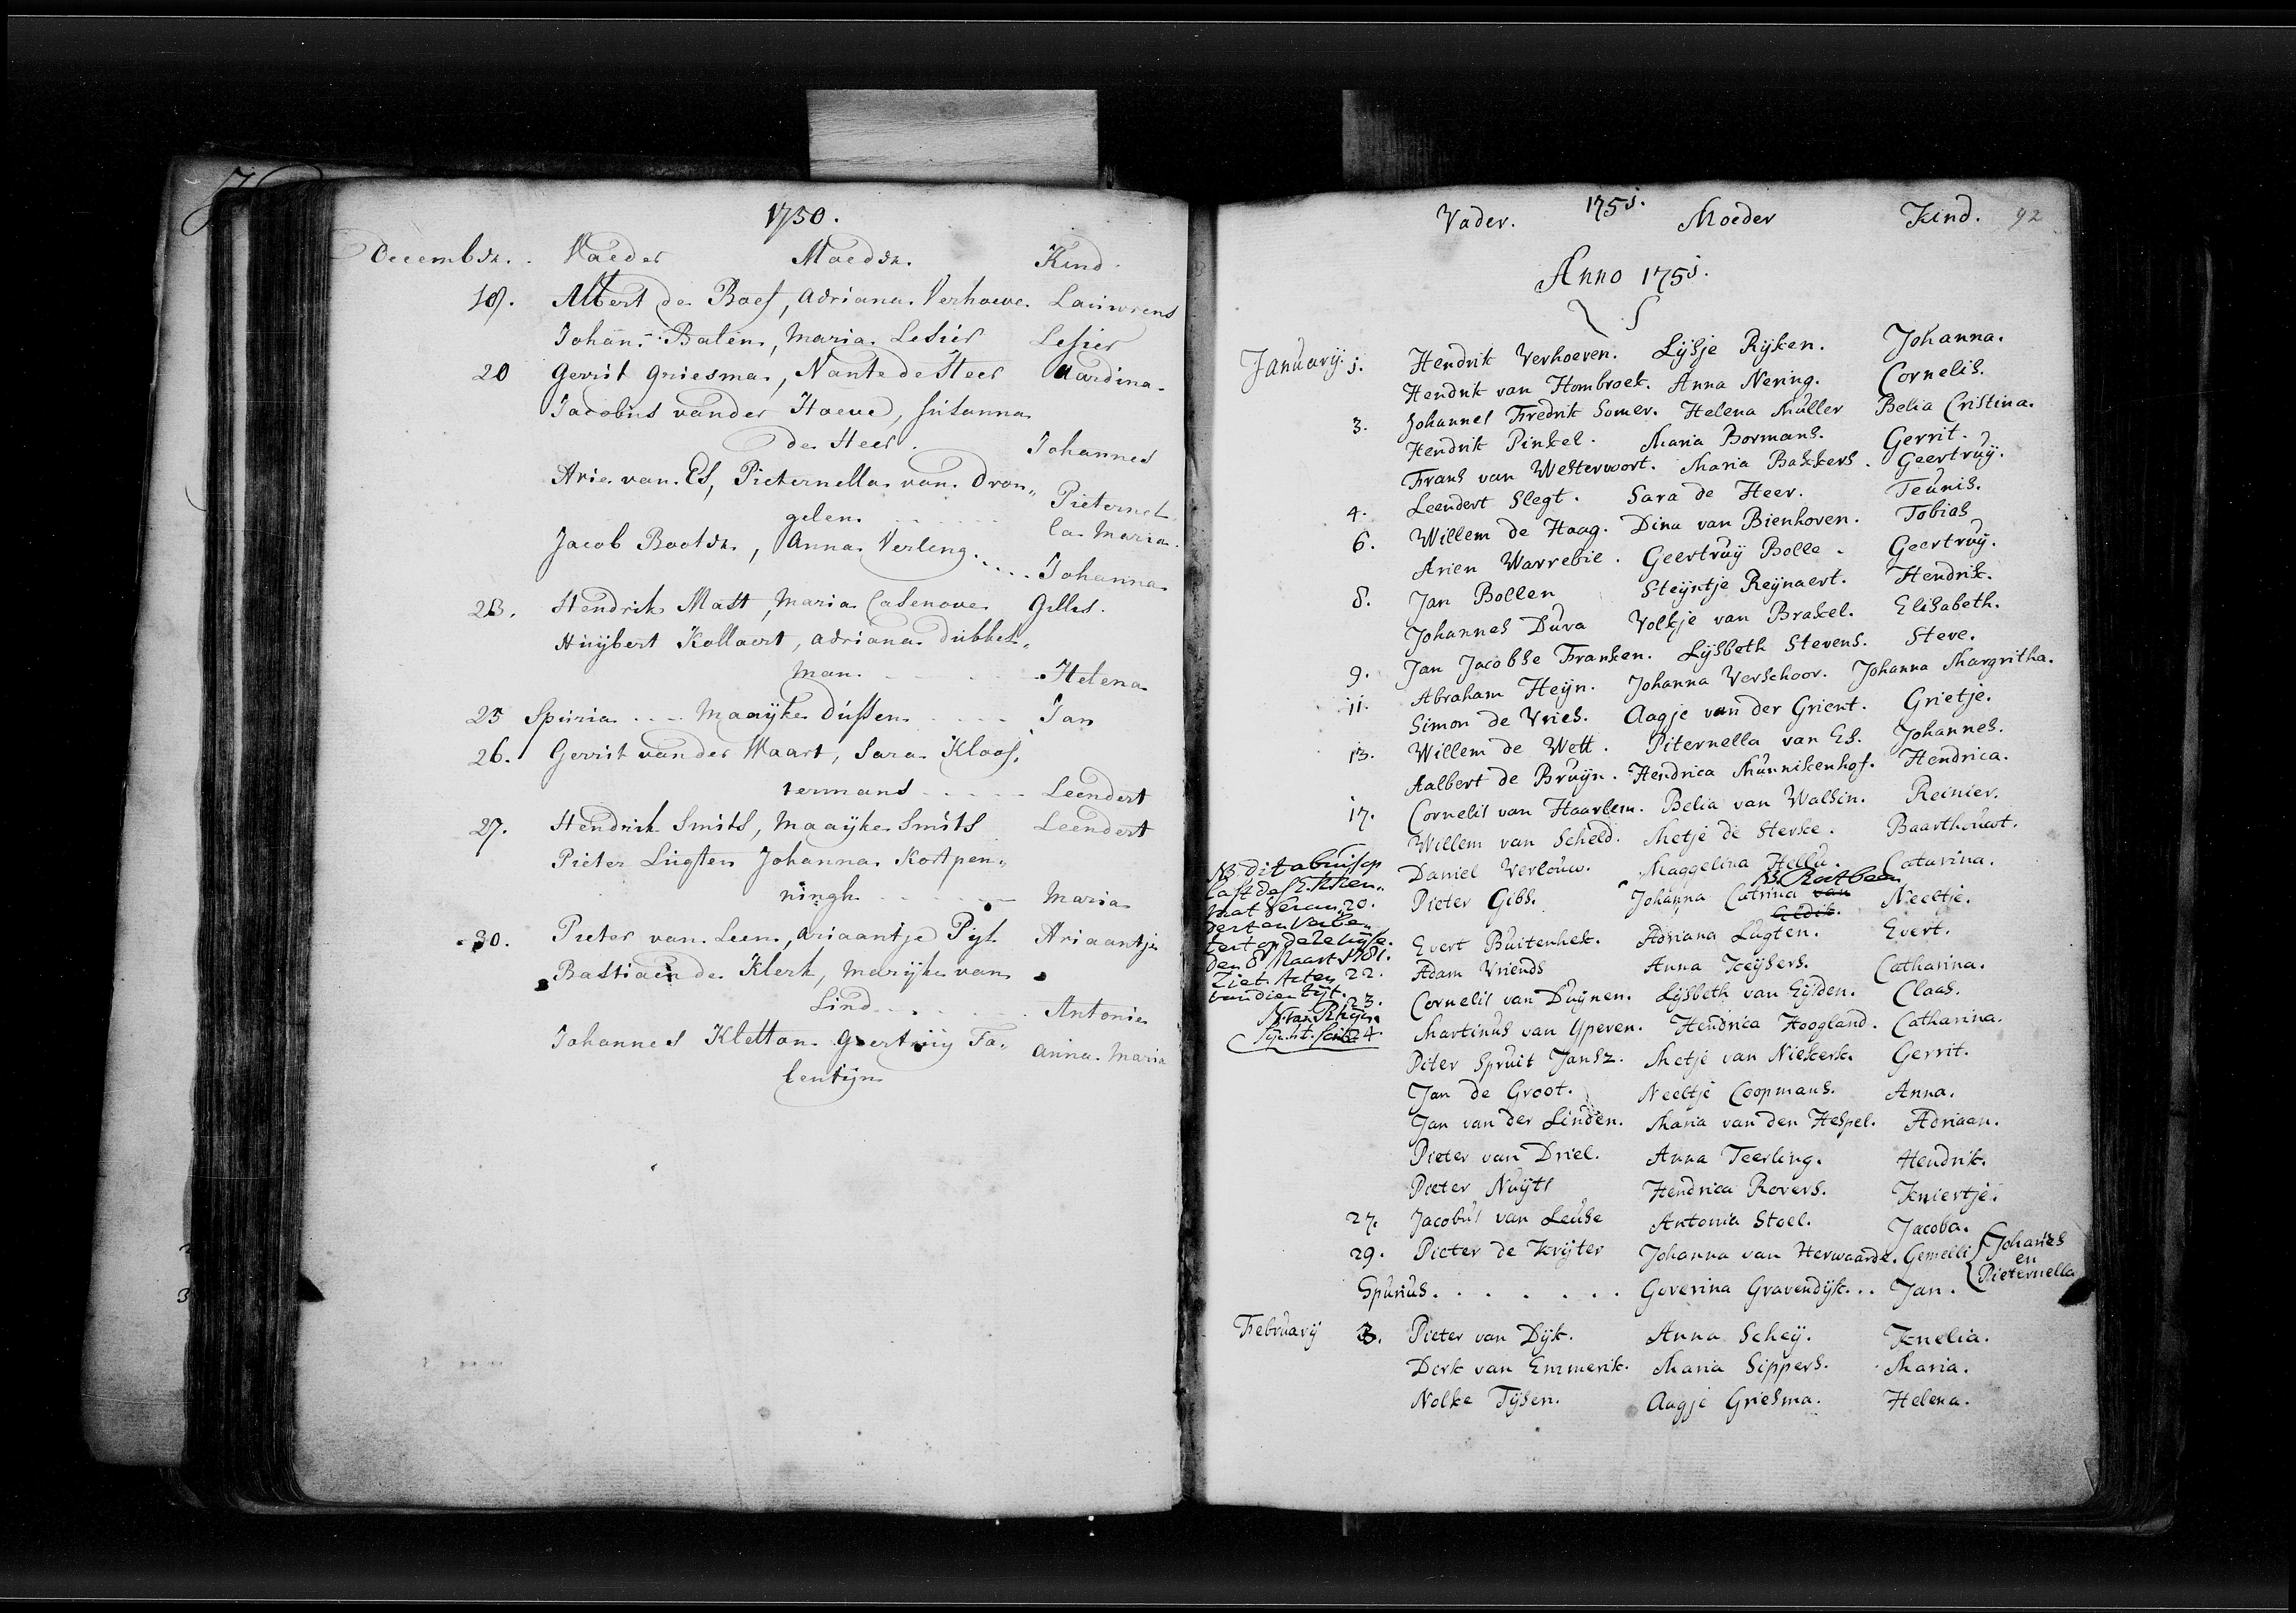 1750.
Decembr. Vaeder Moedr. Kind.
18. Albert de Boef, Adriana Verhoeve Lauwrens
Johans. Balen, Maria Lesier Lesier
20 Gerrit Griesma, Nante de Heer Aardina
Jacobus vander Hoeve, Susanna
de Heer. Johannes
Arie van Es, Pieternella van Dron„
gelen Pieternel
Jacob Bootsr, Anna Verling la Maria
Johanna
23. Hendrik Mast, Maria Casenove Gilles.
Huijbert Kollaert, Adriana Dubbel„
man Helena
25 Spuria Maaijke Dussen Jan
26. Gerrit van der Waart, Sara Kloos„
termans Leendert
27. Hendrik Smits, Maaijke Smits Leendert
Pieter Lugten Johanna Kortpen„
ningh Maria
30. Pieter van Leen, Ariaantje Pijl Ariaantje
Bastiaen de Klerk, Marijke van
Lind Antonie
Johannes Kletton Geertruij Fa„ Anna Maria
lentijn
1751.
Vader. Moeder Kind. 92
Anno 1751.
January 1. Hendrik Verhoeven. Lijsje Rijken. Johanna.
Hendrik van Hombroek. Anna Nering. Cornelis.
3. Johannes Fredrik Somer. Helena Muller Belia Cristina.
Hendrik Pinkel. Maria Bormans. Gerrit.
Frans van Westervoort. Maria Bakkers. Geertruy.
4. Leendert Slegt. Sara de Heer. Teunis.
6. Willem de Haag. Dina van Bienhoven. Tobias
Arien Warrebie. Geertruy Bolle. Geertruy.
8. Jan Bollen Steijntje Reijnaert. Hendrik.
Johannes Duva Volkje van Brakel. Elisabeth.
9. Jan Jacobse Franken. Lijsbeth Stevens. Steve.
11. Abraham Heijn. Johanna Verschoor. Johanna Margritha.
Simon de Vries. Aagje van der Grient. Grietje.
13. Willem de Wett. Piternella van Es. Johannes.
Aalbert de Bruijn. Hendrica Munnikenhof. Hendrica.
17. Cornelis van Haarlem. Belia van Walsin. Reinier.
Willem van Scheld. Metje de Sterke. Baarthout.
Daniel Verlouw. Maggelina Hellu. Catarina.
NB. dit abuis op
last des E. Kken„
raat veran„
dert en verbe„
tert op deze wijse
den 8 Maart 1781.
Ziet Acten
van dien tijt.
20. Pieter Gibs. Johanna Catrina van Neeltje.
NB. Rootbeen
Evert Buitenhek. Adriana Lugten. Evert.
22. Adam Vriends Anna Keijsers. Catharina.
23. Cornelis van Duijnen. Lijsbeth van Eijsden. Claas.
24. Martinus van Yperen. Hendrica Hoogland. Catharina.
Piter Spruit Jansz. Metje van Niekerk. Gerrit.
Jan de Groot. Neeltje Coopmans. Anna.
Jan van der Linden. Maria van den Hespel. Adriaan.
Pieter van Driel. Anna Teerling. Hendrik.
Pieter Nuijts Hendrica Rovers. Kniertje.
27. Jacobus van Leuse Antonia Stoel. Jacoba.
29. Pieter de Krijter Johanna van Herwaarde. Gemelli Johannes
en
Pieternella
Spurius. Goverina Gravendijk. Jan.
February 3. Pieter van Dijk. Anna Scheij. Knelia.
Dirk van Emmerik. Maria Sippers. Maria.
Nolke Tijsen. Aagje Griesma. Helena.